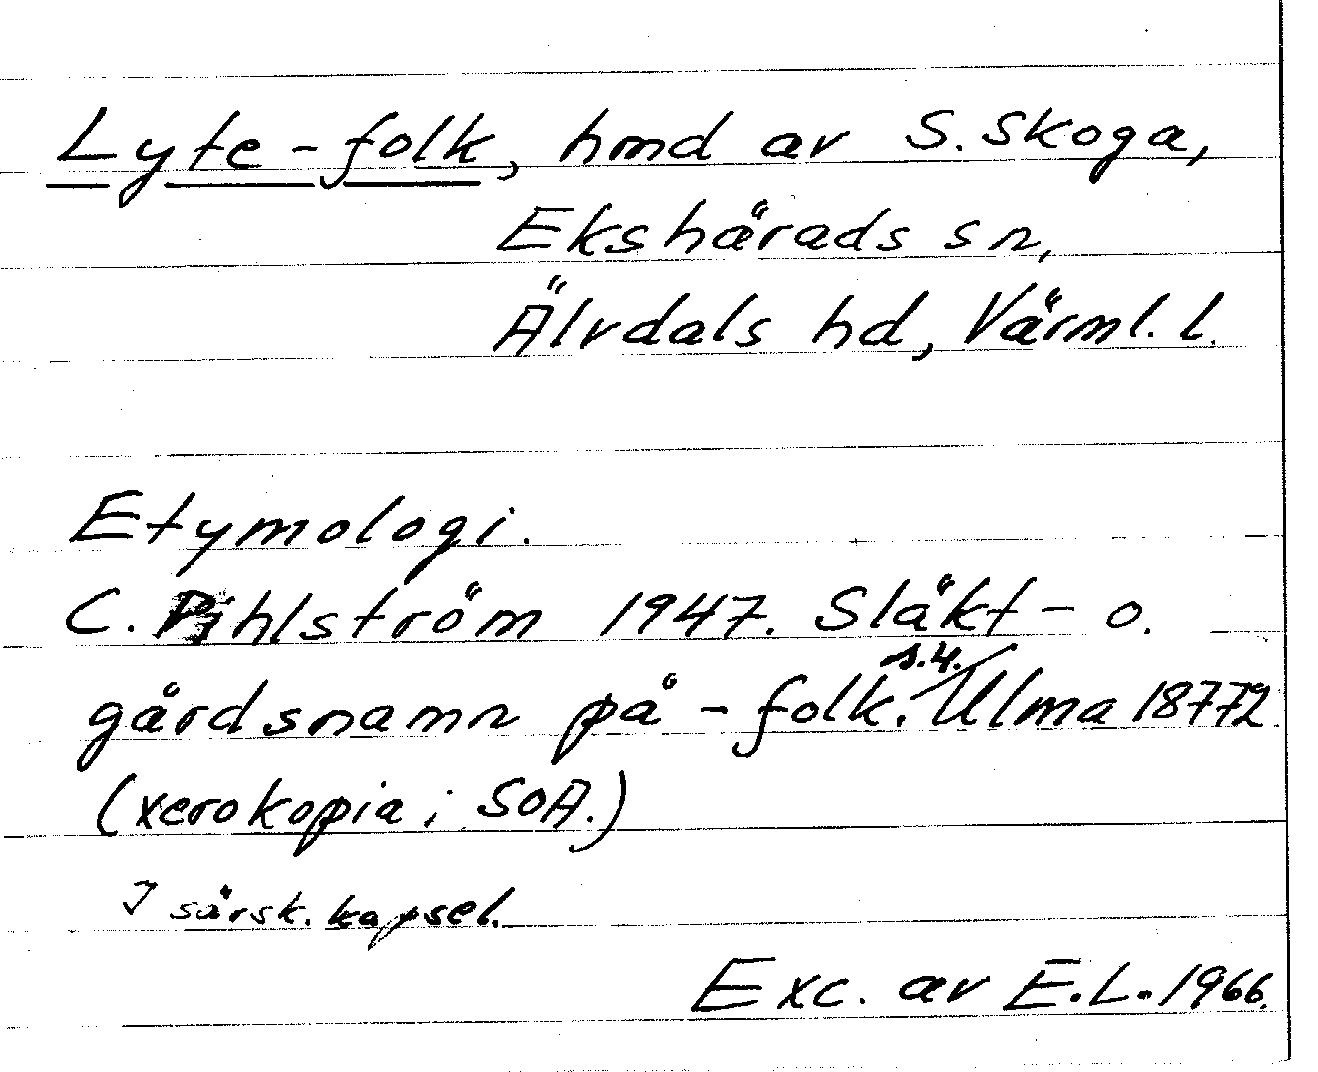 Lyte-folk, hmd av S. Skoga,
Ekshärads sn,
Älvdals hd, Värml. l.
Etymologi.
C. Pihlström 1947. Släkt- o.
gårdsnamn på -folk. s.4. Ulma 18772
(xerokopia i SOA.)
I särsk. kapsel.
Exc. av E.L. 1966.